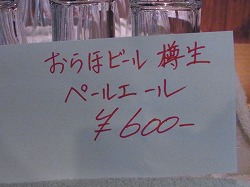 おらほビール 樽生
ペールエール
¥600-